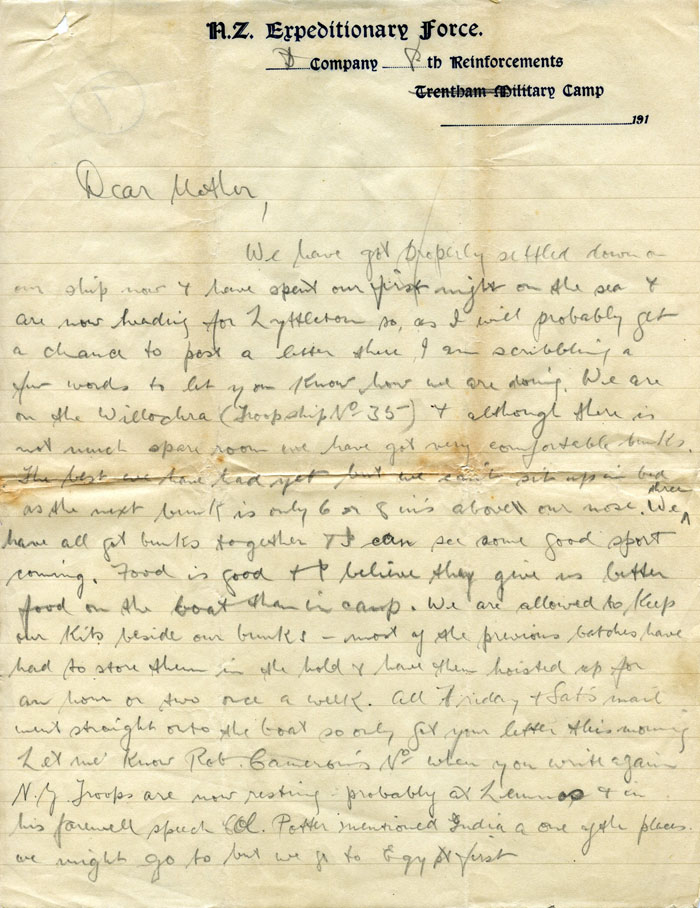 N.Z. Expeditionary Force.
D Company 8 th Reinforcements
Trentham Military Camp
191
Dear Mother,
We have got properly settled down on
our ship now & have spent our first night on the sea &
are now heading for Lyttleton so, as I will probably get
a chance to post a letter there, I am scribbling a
few words to let you know how we are doing. We are
on the Willochra (Troopship No 35) & although there is
not much spare room we have got very comfortable bunks.
The best we have had yet but we can't sit up in bed
as the next bunk is only 6 or 8 ins above our nose. We
have all got bunks together & I can see some good sport
coming. Food is good & I believe they give us better
food on the boat than in camp. We are allowed to keep
our kits beside our bunks - most of the previous batches have
had to store them in the hold & have them hoisted up for
an hour or two once a week. All Friday & Sat's mail
went straight onto the boat so only got your letter this morning
Let me know Rob. Cameron's No when you write again
N.Z. Troops are now resting - probably at Lemnos & in
his farewell speech Col. Potter mentioned India a one of the places
we might go to but we go to Egypt first